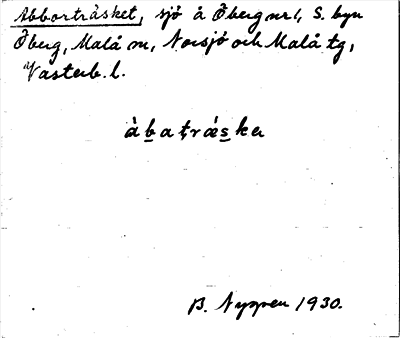 Abborträsket, sjö å Öberg nr 1, S. byn
Öberg, Malå sn, Norsjö och Malå tg,
Västerb. l.
àbatráska
B. Nygren 1930.